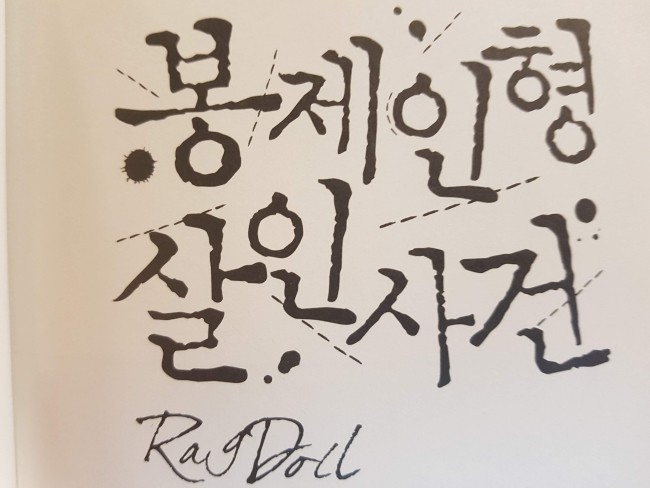 봉제인형
살인사건
RagDoll